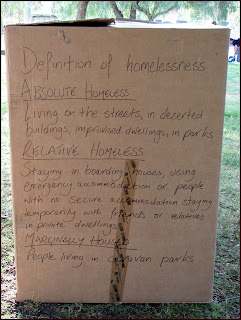 Definition of homelessness
ABSOLUTE HOMELESS
Living on the streets, in deserted
buildings, improvised dwellings, in parks
RELATIVE HOMELESS
Staying in boarding houses, using
emergency accommodation or people
with no secure accommodation staying
temporarily with friends or relatives
in private dwellings
MARGINALLY HOUSED
People living in caravan parks